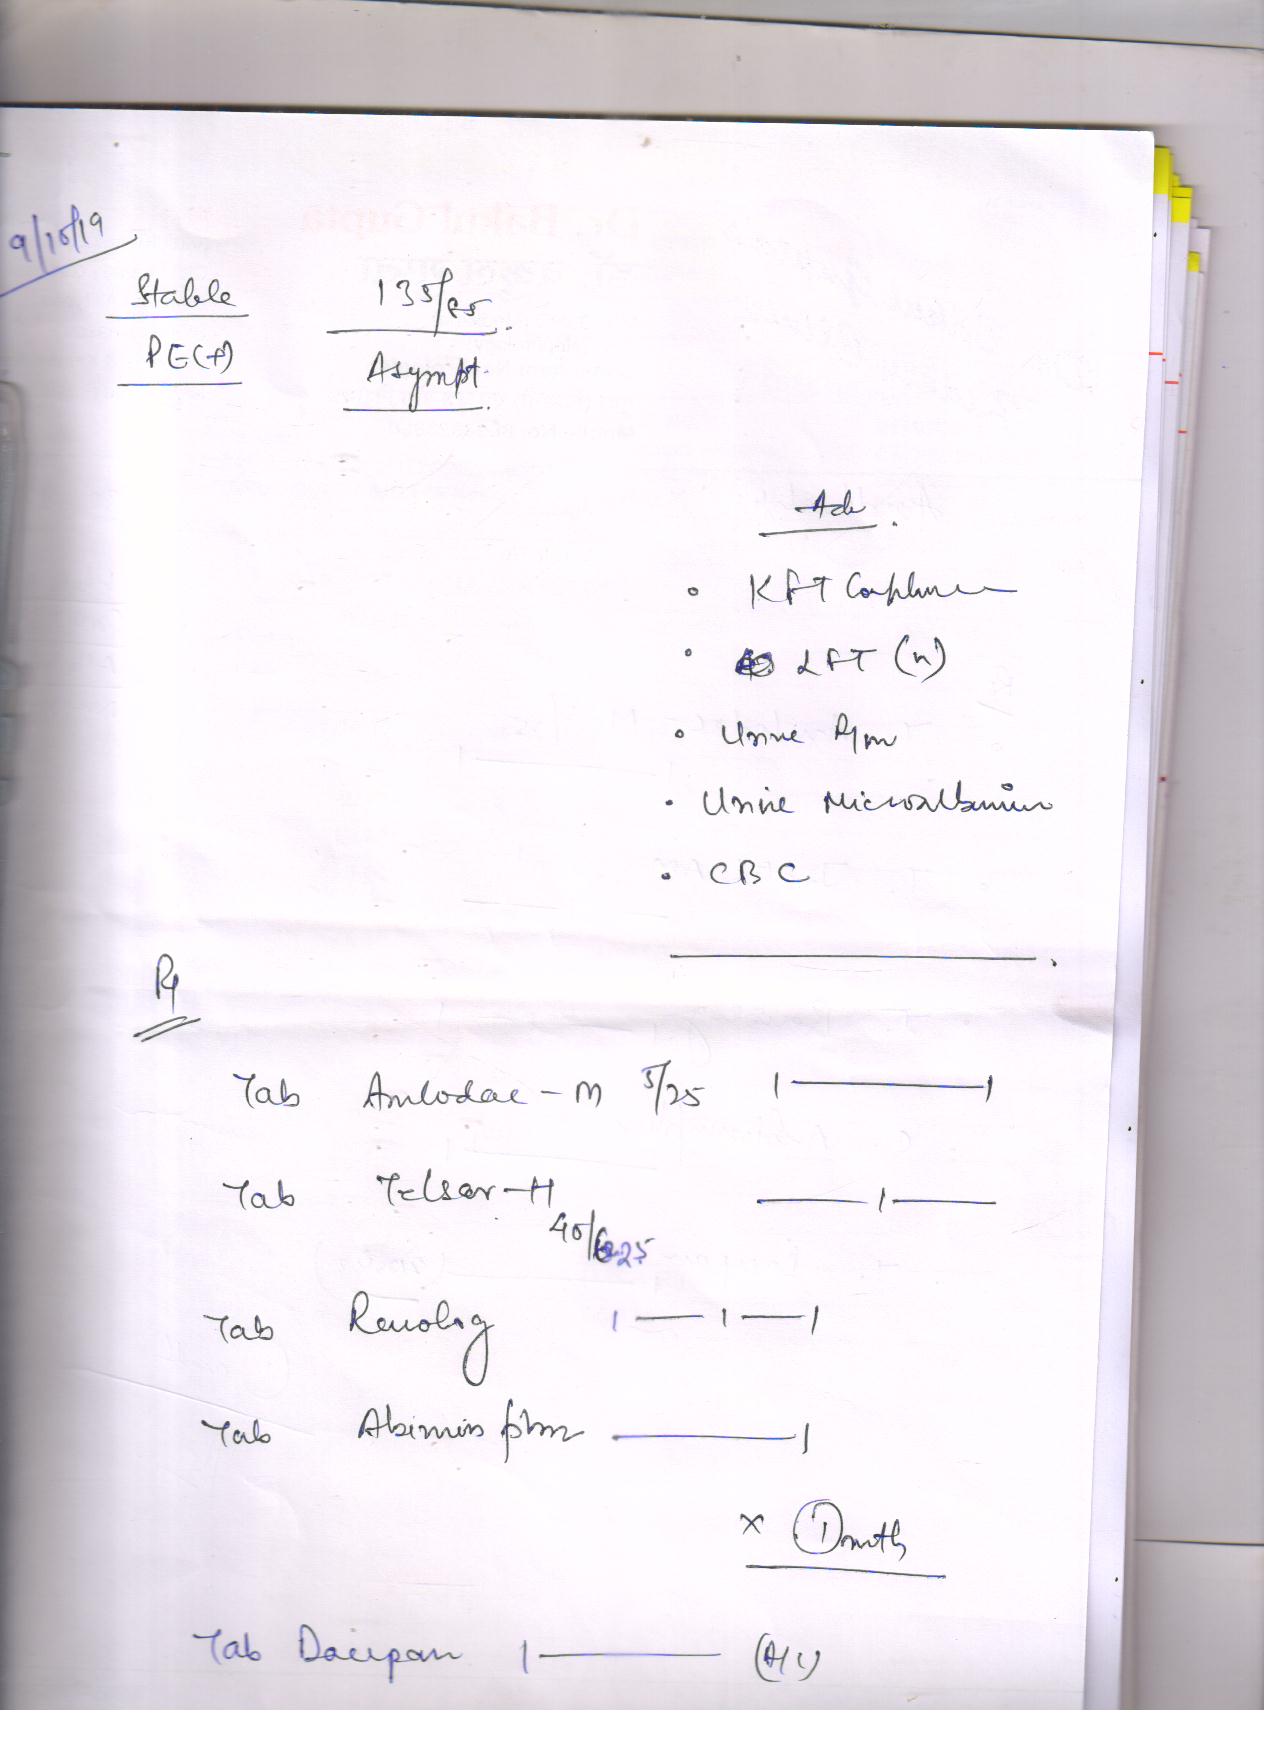 9/10/19
Stable 135/85
PE(+) Asympt.
Adv.
• KFT Complete
• LFT (n)
• Urine R/m
• Urine Microalbumin
• CBC
Rx
Tab Amlodac-M 5/25 1 — 1
Tab Telsar-H — 1 —
40/6.25
Tab Renolog 1 — 1 — 1
Tab — 1
x 1 month
Tab 1 — (A/C)